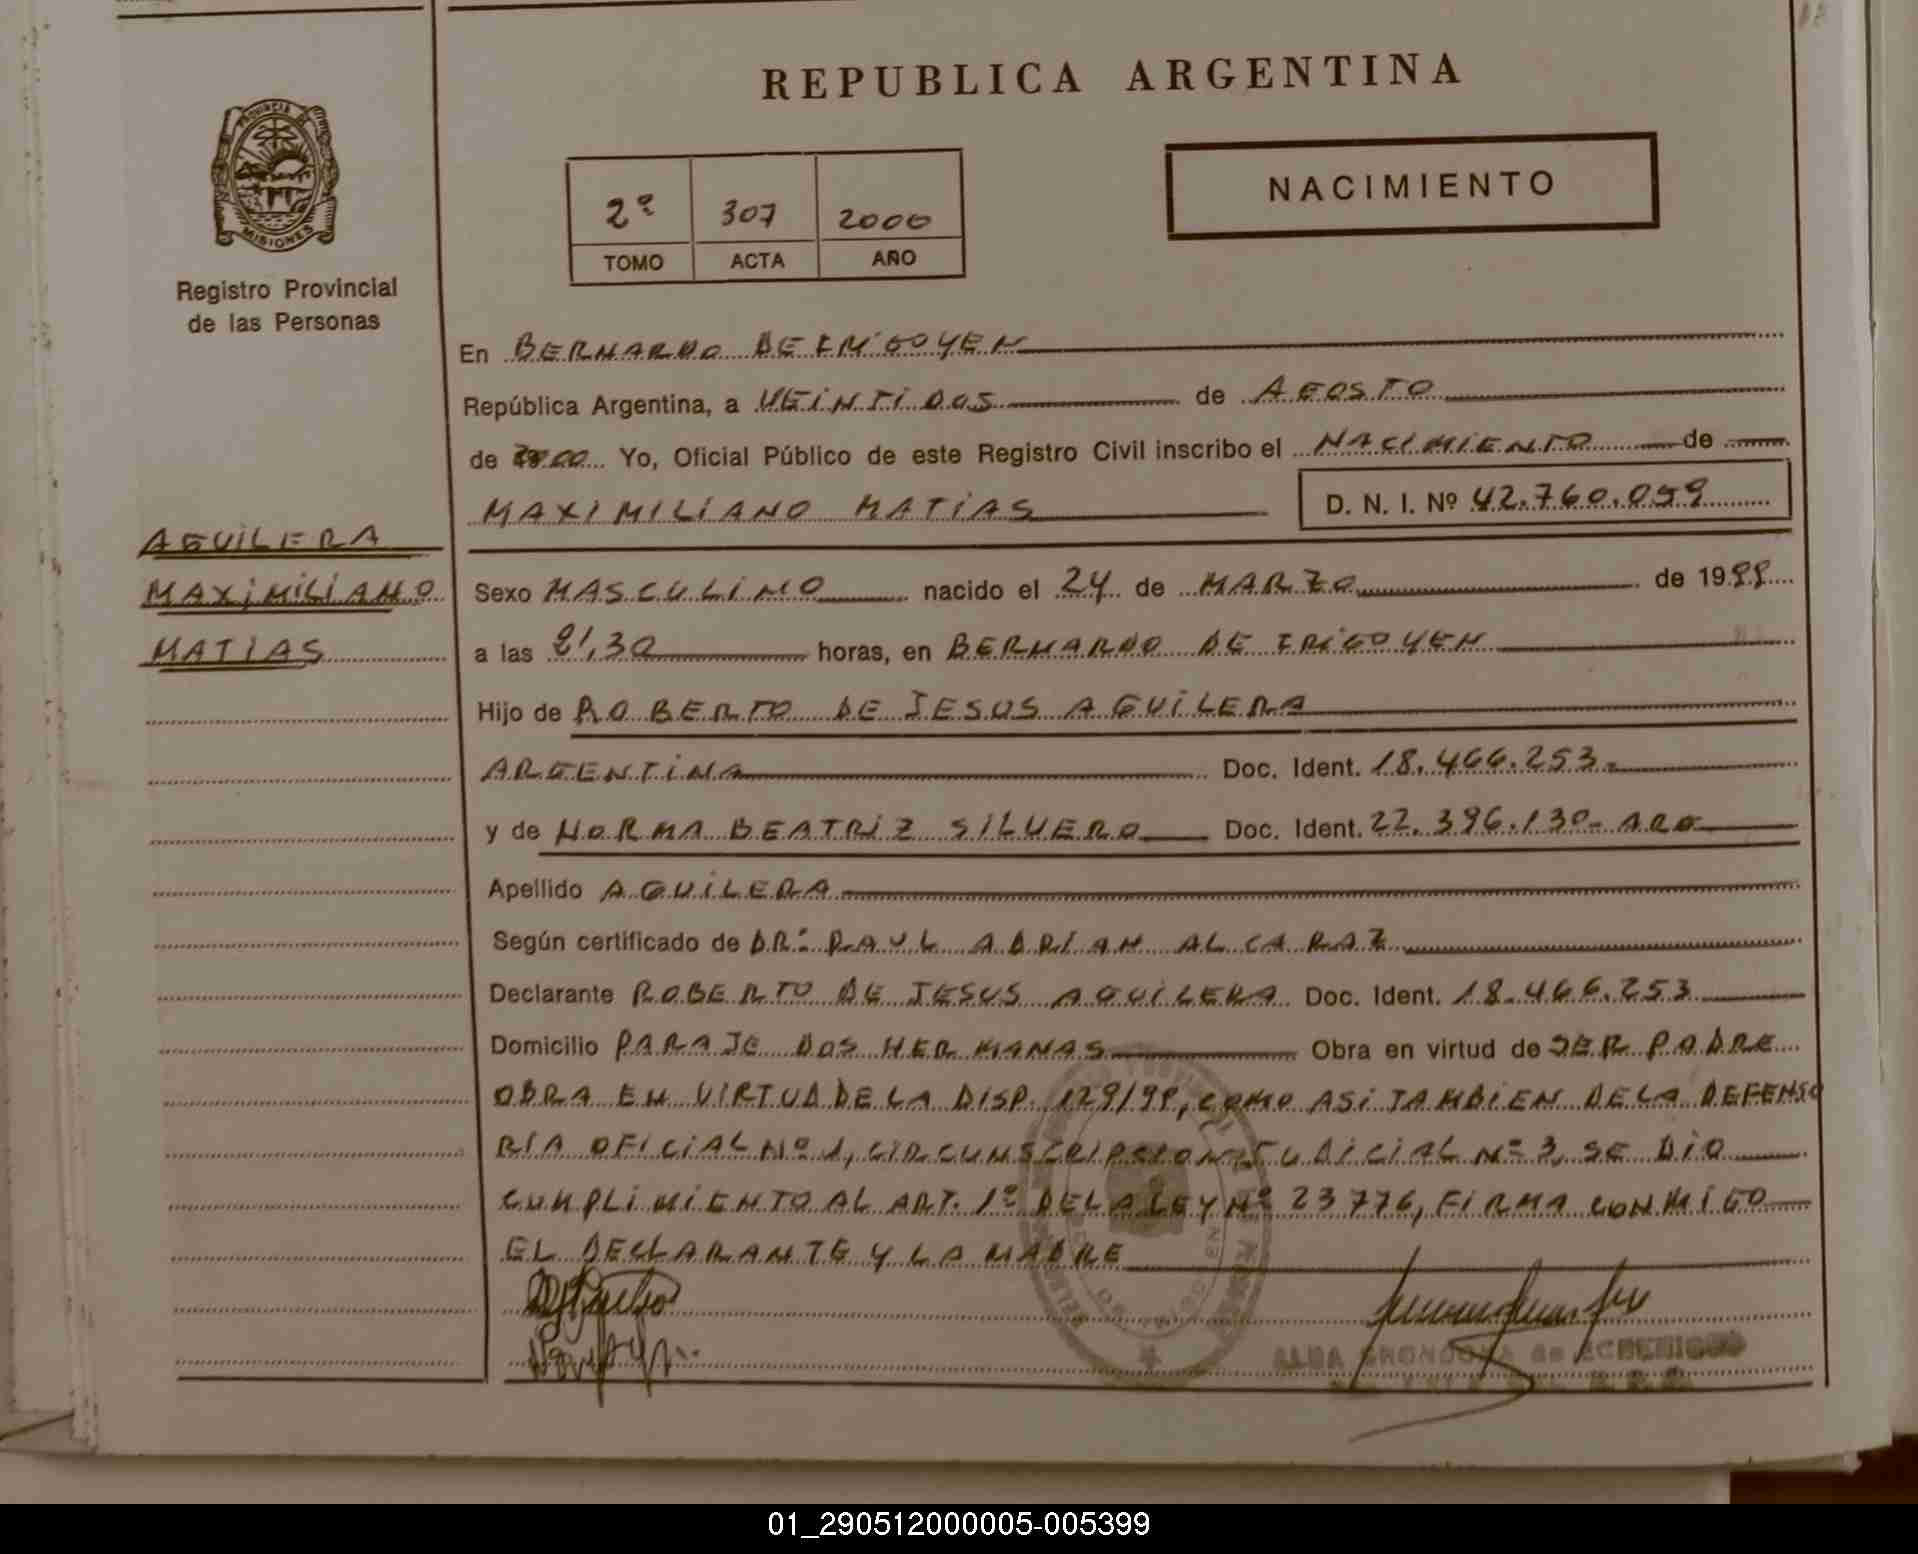 REPUBLICA ARGENTINA
PROVINCIA DE
MISIONES
Registro Provincial
de las Personas
2º 307 2000
TOMO ACTA AÑO
NACIMIENTO
En BERNARDO DE IRIGOYEN
República Argentina, a VEINTIDOS de AGOSTO
de 2000 Yo, Oficial Público de este Registro Civil inscribo el NACIMIENTO de
MAXIMILIANO MATIAS D. N. I. Nº 42.760.059
AGUILERA
MAXIMILIANO
MATIAS
Sexo MASCULINO nacido el 24 de MARZO de 1999
a las 21,30 horas, en BERNARDO DE IRIGOYEN
Hijo de ROBERTO DE JESUS AGUILERA
ARGENTINA Doc. Ident. 18.466.253.
y de NORMA BEATRIZ SILVERO Doc. Ident. 22.396.130- ARG
Apellido AGUILERA
Según certificado de DR: RAUL ADRIAN ALCARAZ
Declarante ROBERTO DE JESUS AGUILERA Doc. Ident. 18.466.253
Domicilio PARAJE DOS HERMANAS Obra en virtud de SER PADRE
OBRA EN VIRTUD DE LA DISP. 129/99, COMO ASI TAMBIEN DE LA DEFENSO
RIA OFICIAL Nº 1, CIRCUNSCRIPCION JUDICIAL Nº 3, SE DIO
CUMPLIMIENTO AL ART. 1º DE LA LEY Nº 23776, FIRMA CONMIGO
EL DECLARANTE Y LA MADRE
ALBA GRONDONA de
01_290512000005-005399